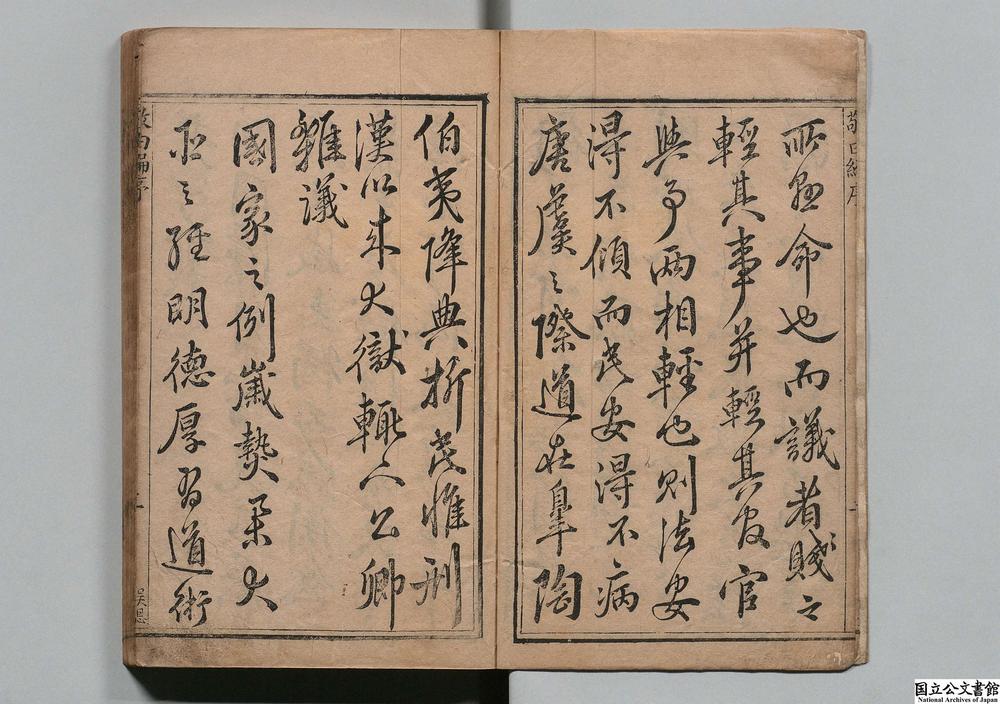 敬由編序
所懸命也而議者賤之
輕其事并輕其官官
與事兩相輕也則法安
得不傾而民安得不病
唐虞之際道在皐陶
一
伯夷降典折民惟刑
漢以來大獄輒下公卿
雜議
國家之例歲大
臣之經明德厚習道術
敬由編序
一
吳恩
国立公文書館
National Archives of Japan